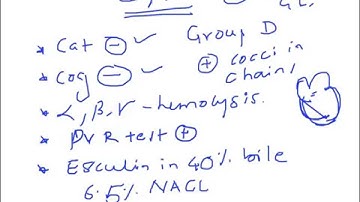 * Cat ⊖ ✓ Group D
* Cog ⊖ ✓ ⊕ cocci in chains
* α, β, γ - hemolysis.
* PYR test ⊕
* Esculin in 40% bile
6.5% NACL